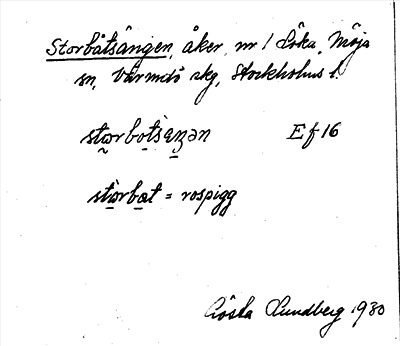 Storbåtsängen, åker, nr 1 Löka, Möja
sn, Värmdö skg, Stockholms l.
storbotsäŋən Ef 16
storbot = rospigg
Gösta Lundberg 1930